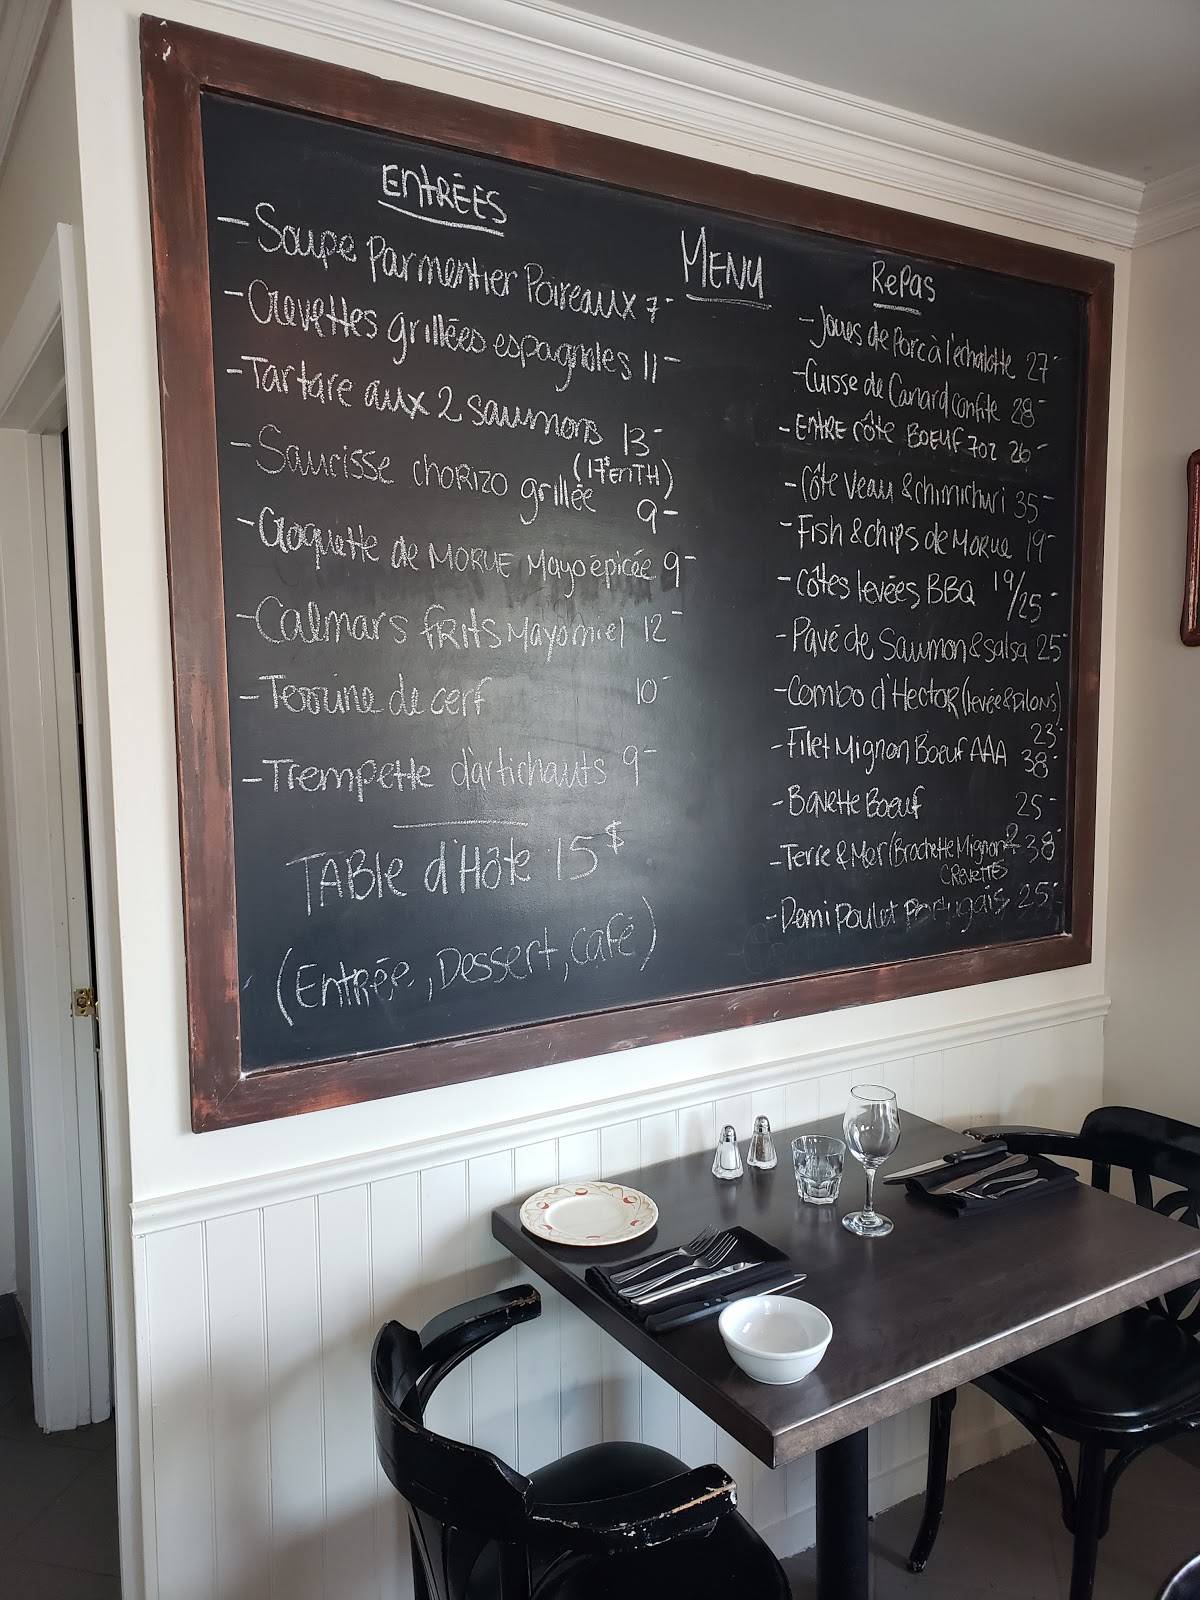 ENTRÉES
- Soupe Parmentier Poireaux 7-
- Crevettes grillées espagnoles 11-
- Tartare aux 2 saumons 13-
(17$ en TH)
- Saucisse chorizo grillée 9-
- Croquette de MORUE Mayo épicée 9-
- Calmars frits Mayo miel 12-
- Terrine de cerf 10-
- Trempette d'artichauts 9-
TABLE d'Hôte 15$
(Entrée, Dessert, café)
MENU
Repas
- Joues de Porc à l'échalotte 27-
- Cuisse de Canard confite 28-
- ENTRE côte BOEUF 7oz 26-
- Côte Veau & chimichuri 35-
- Fish & chips de Morue 19-
- Côtes levées BBQ 19/25-
- Pavé de Saumon & salsa 25-
- Combo d'Hector (levée & Pilons)
23-
- Filet Mignon Boeuf AAA 38-
- Bavette Boeuf 25-
- Terre & Mer (Brochette Mignon & 2 38-
CREVETTES
- Demi poulet Portugais 25-